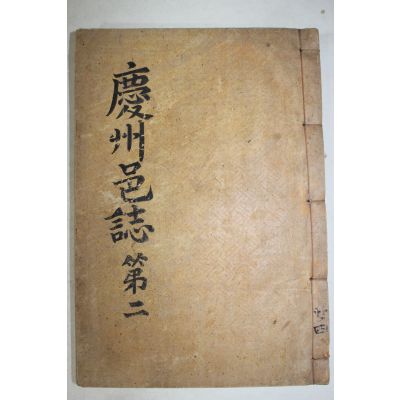 慶州邑誌 第二